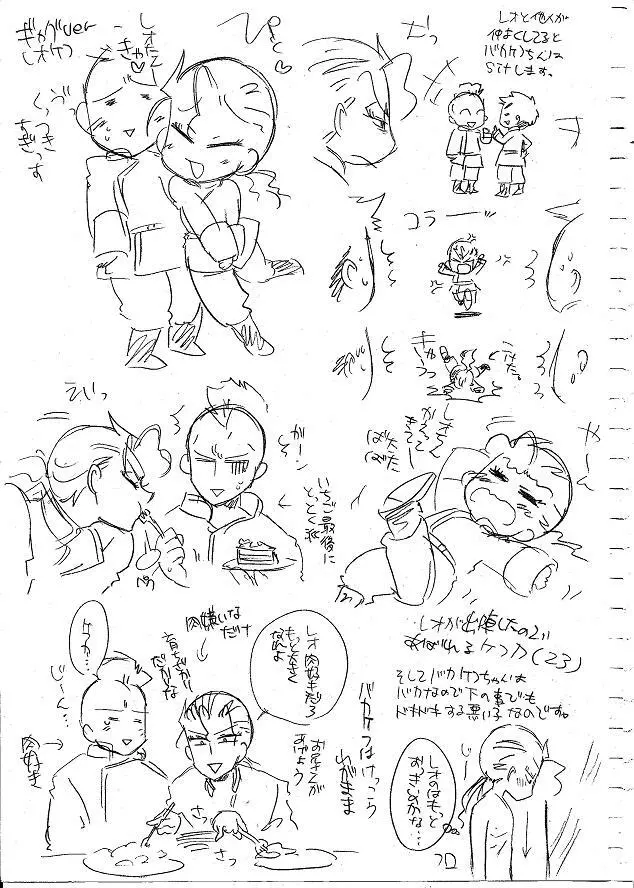 ギャグver
レオケフ
レオたん
ぎゃ♡
ぴとっ♡
くっつき
すぎっす
レオと他人が
仲よくしてると
バカケフちんは
Sitします。
コラーーッ
こけた。
レオくん
かえって
きてー
ばた
ばた
やーん
がーン
いちご最後に
とっとく派
ペろ
レオが出陣したので
あばれるケフカ(23)
そしてバカケフちゃんは
バカなので下の事でも
ドキドキする悪い子なのです。
肉嫌いなだけ
育ちざかり
だからな
レオ 肉好きだろ
もっと大きく
なれよ
お兄さんが
あげよう
バカケフはけっこう
わがまま
ケフカ…
じーん…
肉好き
さっ
さっ
じっ
レオのはもっと
おっきいのかな…
フロ